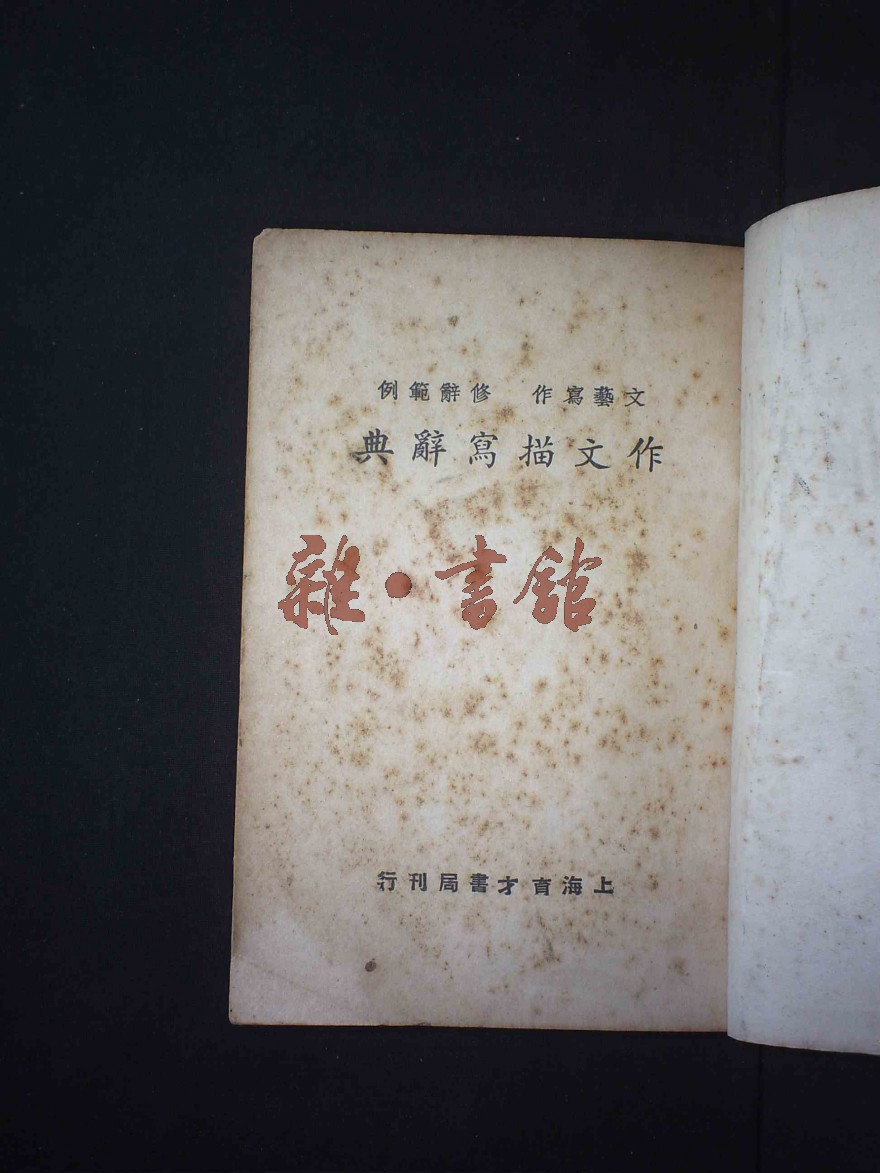 文藝寫作 修辭範例
作文描寫辭典
雜·書館
上海育才書局刊行